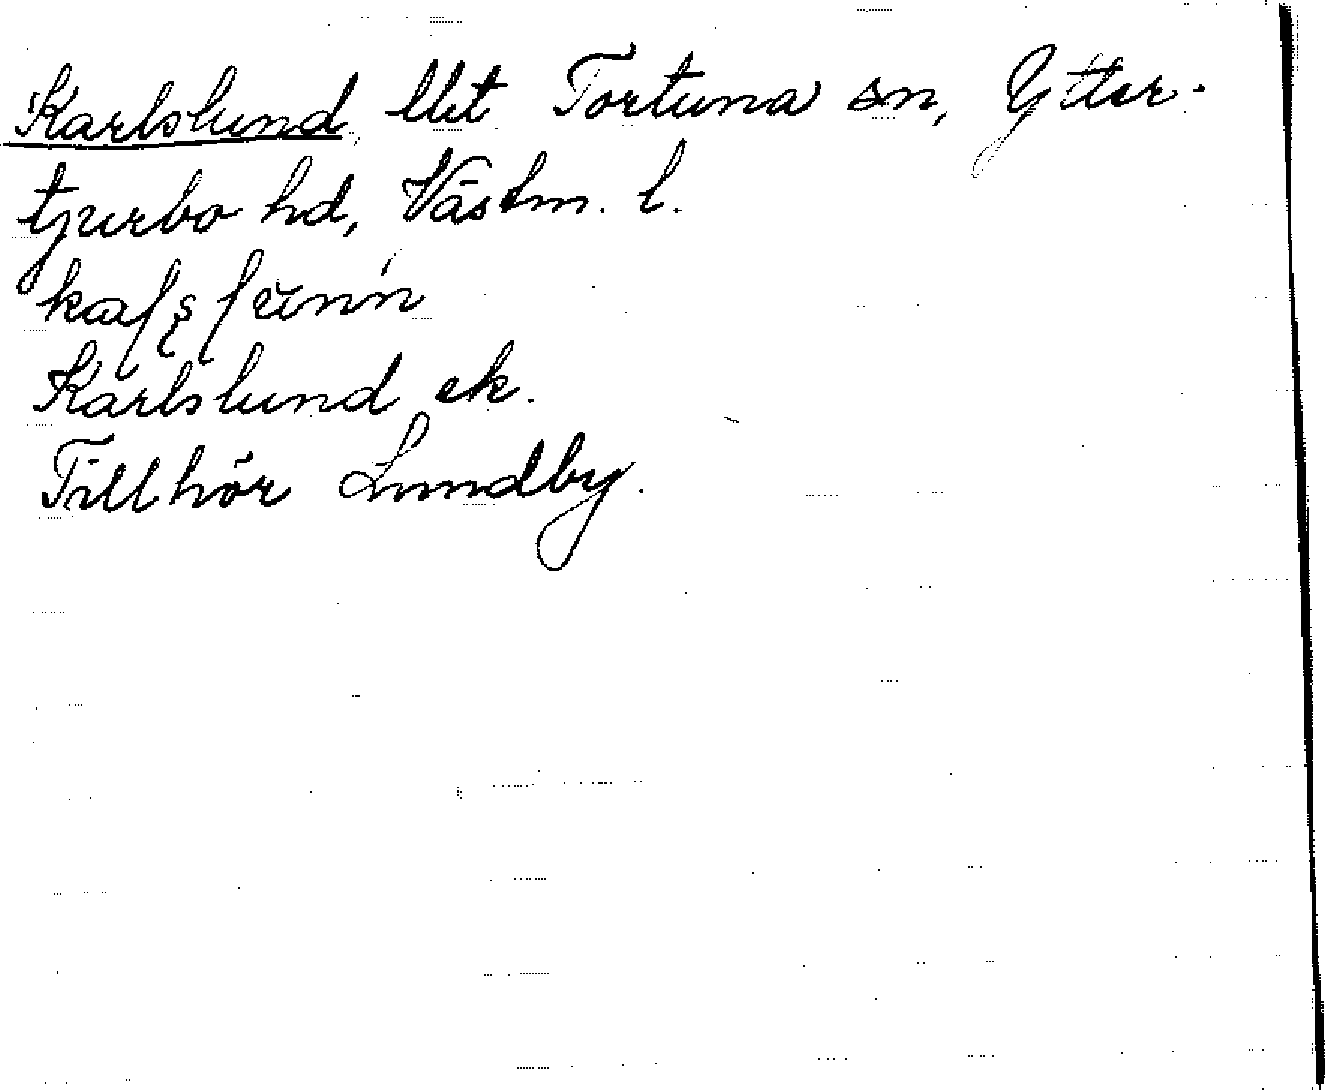 Karlslund, Uet Tortuna sn, Ytter-
tjurbo hd, Västm. l.
Karlslund ek.
Tillhör Lundby.